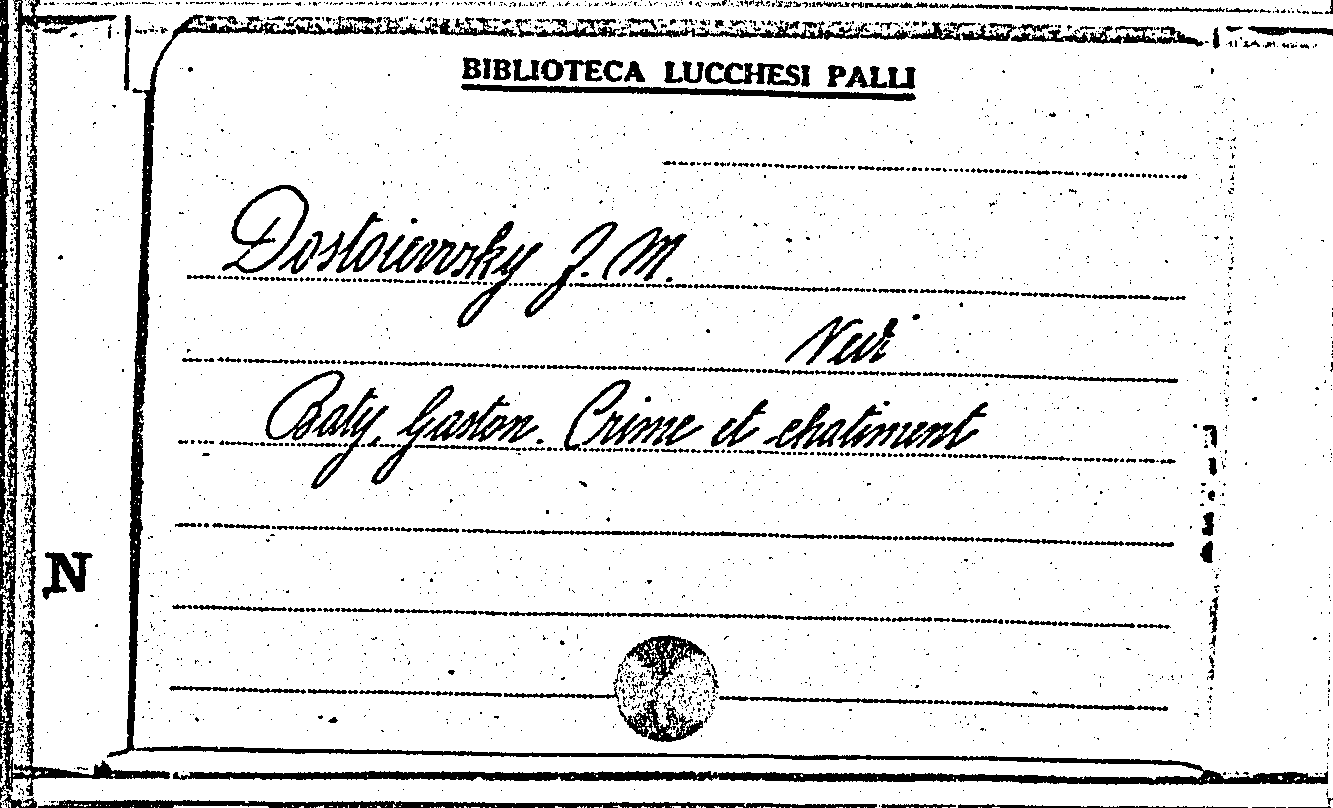 BIBLIOTECA LUCCHESI PALLI
Dostoievvsky J. M.
Vedi
Baty, Gaston. Crime et chatiment
N